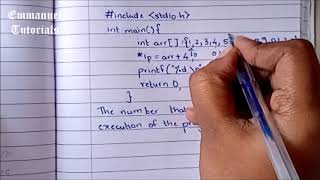 Emmanuel
Tutorials
#include <stdio.h>
int main(){
int arr[ ] = {1, 2, 3, 4, 5
*ip = arr + 4,
printf("%d \n"
return 0,
}
The number that
execution of the